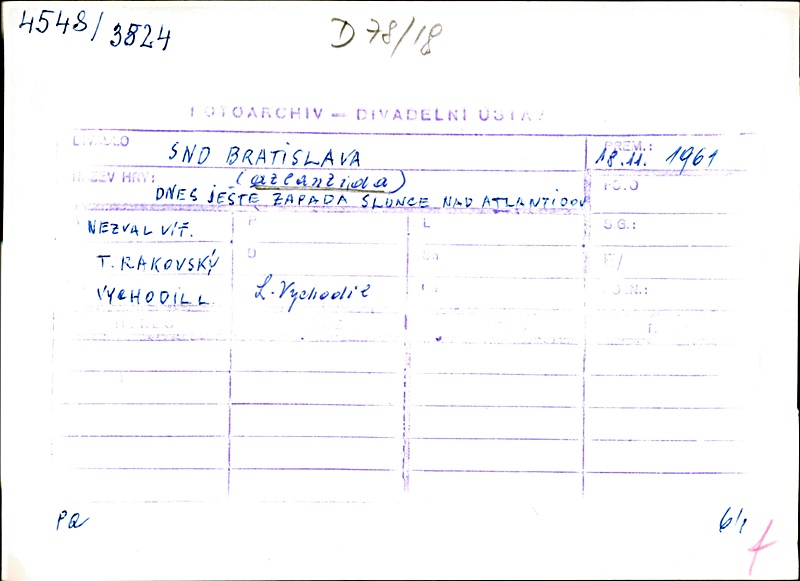 4548/3824 D 78/18
FOTOARCHIV — DIVADELNÍ ÚSTAV
DIVADLO SND BRATISLAVA PREM.: 18.11. 1961
NÁZEV HRY: (atlantida)
DNES JEŠTĚ ZAPADÁ SLUNCE NAD ATLANTIDOU
NEZVAL VÍT. P L S.G.:
T. RAKOVSKÝ
VYCHODIL L. L. Vychodil
PQ